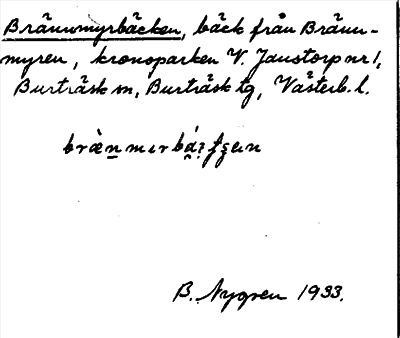 Brännmyrbäcken, bäck från Bränn-
myren, kronoparken V. Janstorp nr 1,
Burträsk sn, Burträsk tg, Västerb. l.
B. Nygren 1933.